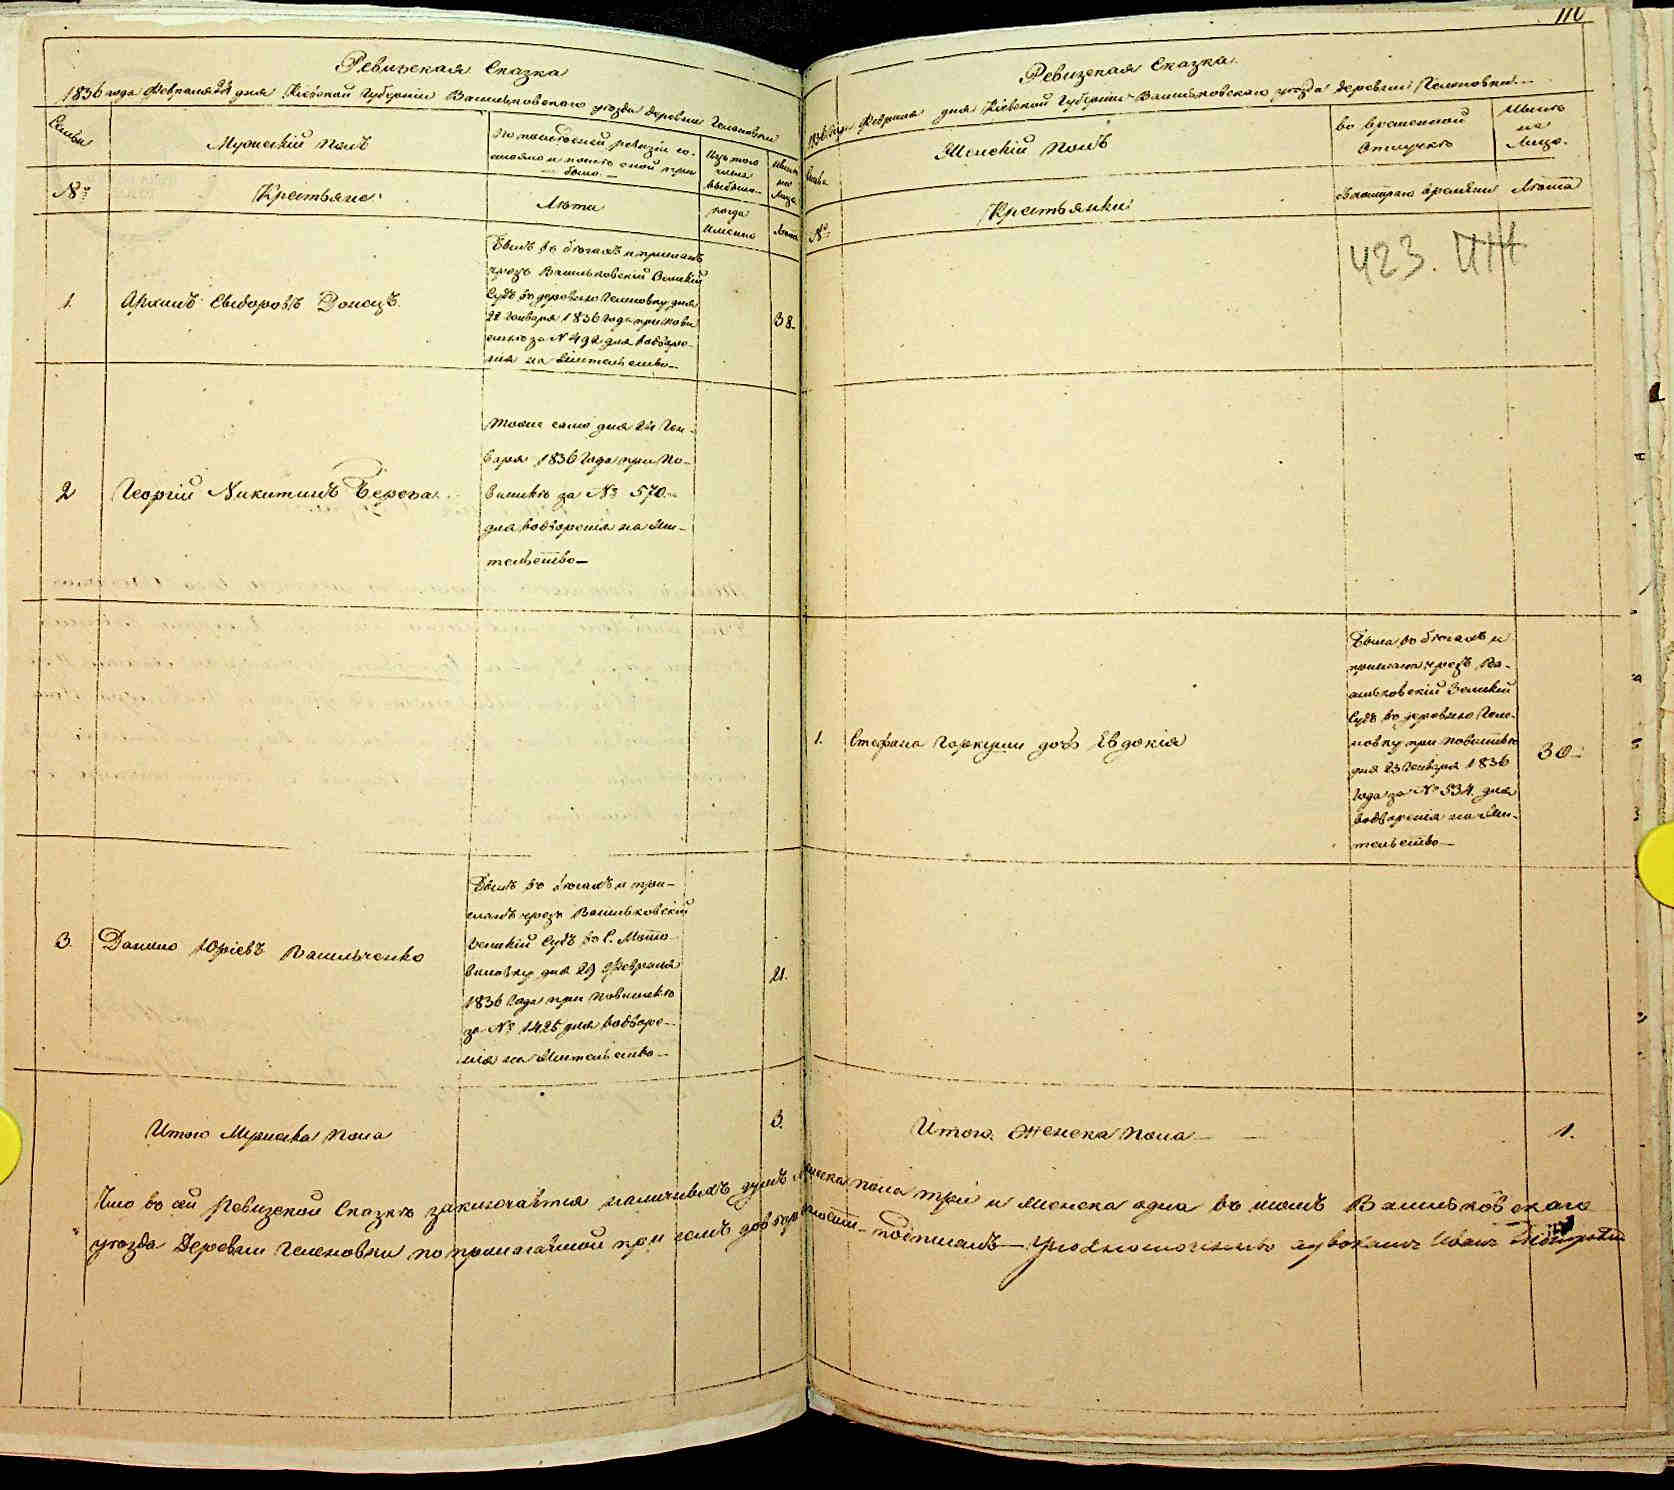 Ревизская Сказка
1836 года Февраля дня Кіевской Губерніи Васильковского уезда деревни
Семьи
Мужескій полъ
по последней ревизіи со-
стояло и после оной при
было
Изъ того
числа
выбыло
ныне
на
лицо
№
Крестьяне
Лета
когда
именно
Лета
1.
Архипъ Ѳедоровъ Донецъ
Былъ въ бегахъ и присланъ
чрезъ Васильковскій Земскій
Судъ въ деревню дня
22 Генваря 1836 года при повѣ
сткѣ за № 492 для водворе-
нія на жительство
38.
2
Георгій Никитинъ
тоже само дня 24 Ген-
варя 1836 Года при По-
висткѣ за № 570
для водворенія на жи-
тельство
3
Данило Юріевъ Васильченко
Былъ въ бегахъ и при-
сланъ чрезъ Васильковскій
Земскій Судъ въ С. Мото-
виловку дня 29 Февраля
1836 Года при повисткѣ
за № 1425 для водворе-
нія на Жительство
21.
Итого Мужеска пола
3.
110
Ревизская Сказка
1836 года Февраля дня Кіевской Губерніи Васильковского уезда деревни
Семьи
Женскій полъ
во временной
отлучкѣ
Ныне
на
Лицо.
№
Крестьянки
съ котораго времени
Лета
423. ИЖ
1.
Стефана дочь Евдокія
Была въ бегахъ и
прислана чрезъ Ва-
сильковскій Земскій
Судъ въ деревню
при повисткѣ
дня 23 Генваря 1836
Года за № 534 для
водворенія на Жи-
тельство
30
Итого Женска пола
1.
Что во сей Ревизской Сказкѣ заключается наличныхъ душъ мужеска пола три и женска одна въ томъ Васильковскаго
уезда Деревни по прилагаемой при семъ доверенности подписалъ Иванъ